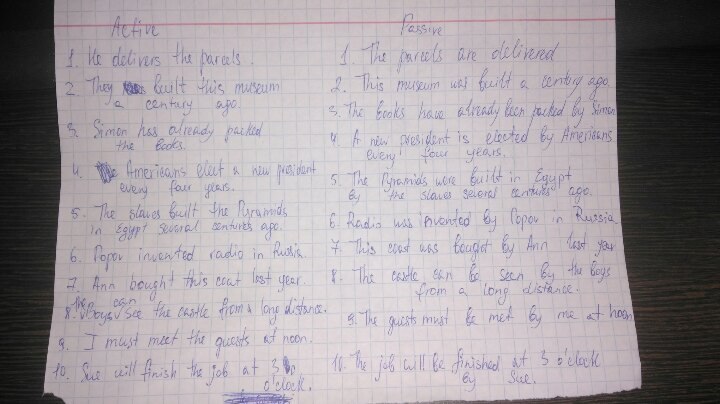 Active
1. He delivers the parcels.
2. They built this museum
a century ago.
3. Simon has already packed
the books.
4. Americans elect a new president
every four years.
5. The slaves built the Pyramids
in Egypt several centures ago.
6. Popov invented radio in Rusia.
7. Ann bought this coat last year.
8. The Boys can see the castle from a long distance.
9. I must meet the guests at noon.
10. Sue will finish the job at 3
o'clock.
Passive
1. The parcels are delivered
2. This museum was built a century ago.
3. The books have already been packed by Simon
4. A new president is elected by Americans
every four years.
5. The Pyramids were built in Egypt
by the slaves several centures ago.
6. Radio was invented by Popov in Russia
7. This coat was bought by Ann last year
8. The castle can be seen by the boys
from a long distance.
9. The guests must be met by me at noon
10. The job will be finished at 3 o'clock
by Sue.